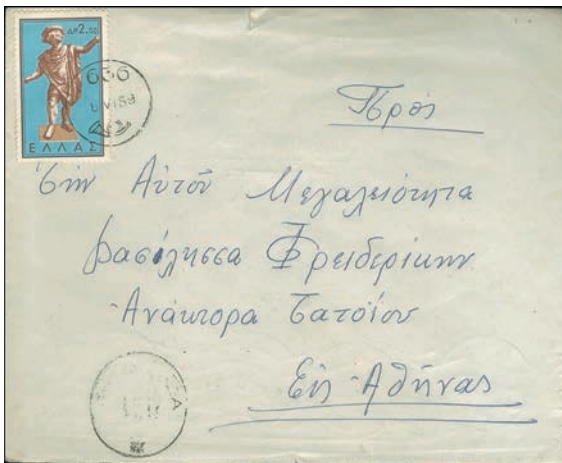 ΔΡ 2.50
ΕΛΛΑΣ
666
Πρός
Στήν Αὐτοῦ Μεγαλειότητα
βασίλησσα Φρειδερίκην
Ἀνάκτορα Τατοΐου
Εἰς Ἀθήνας